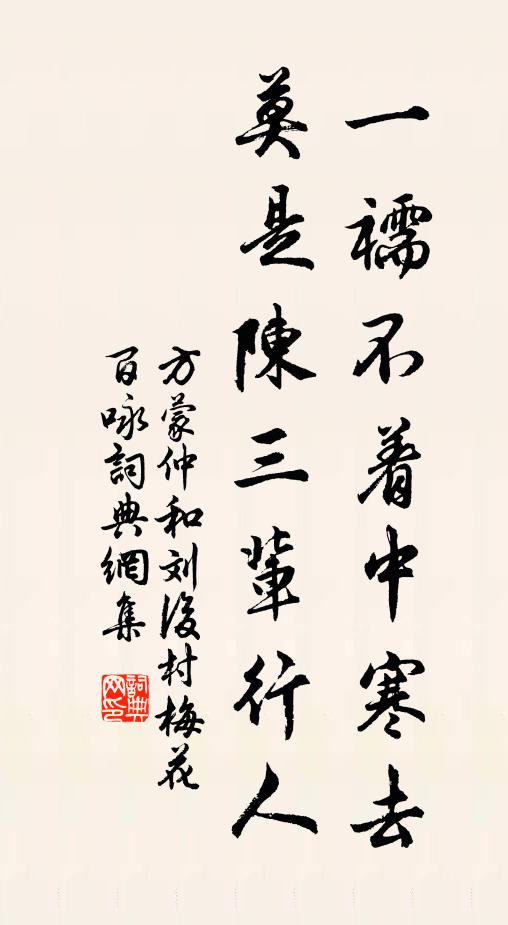 一襦不着中寒去
莫是陳三輩行人
方蒙仲和刘後村梅花
百咏詞典網集
詞典网印